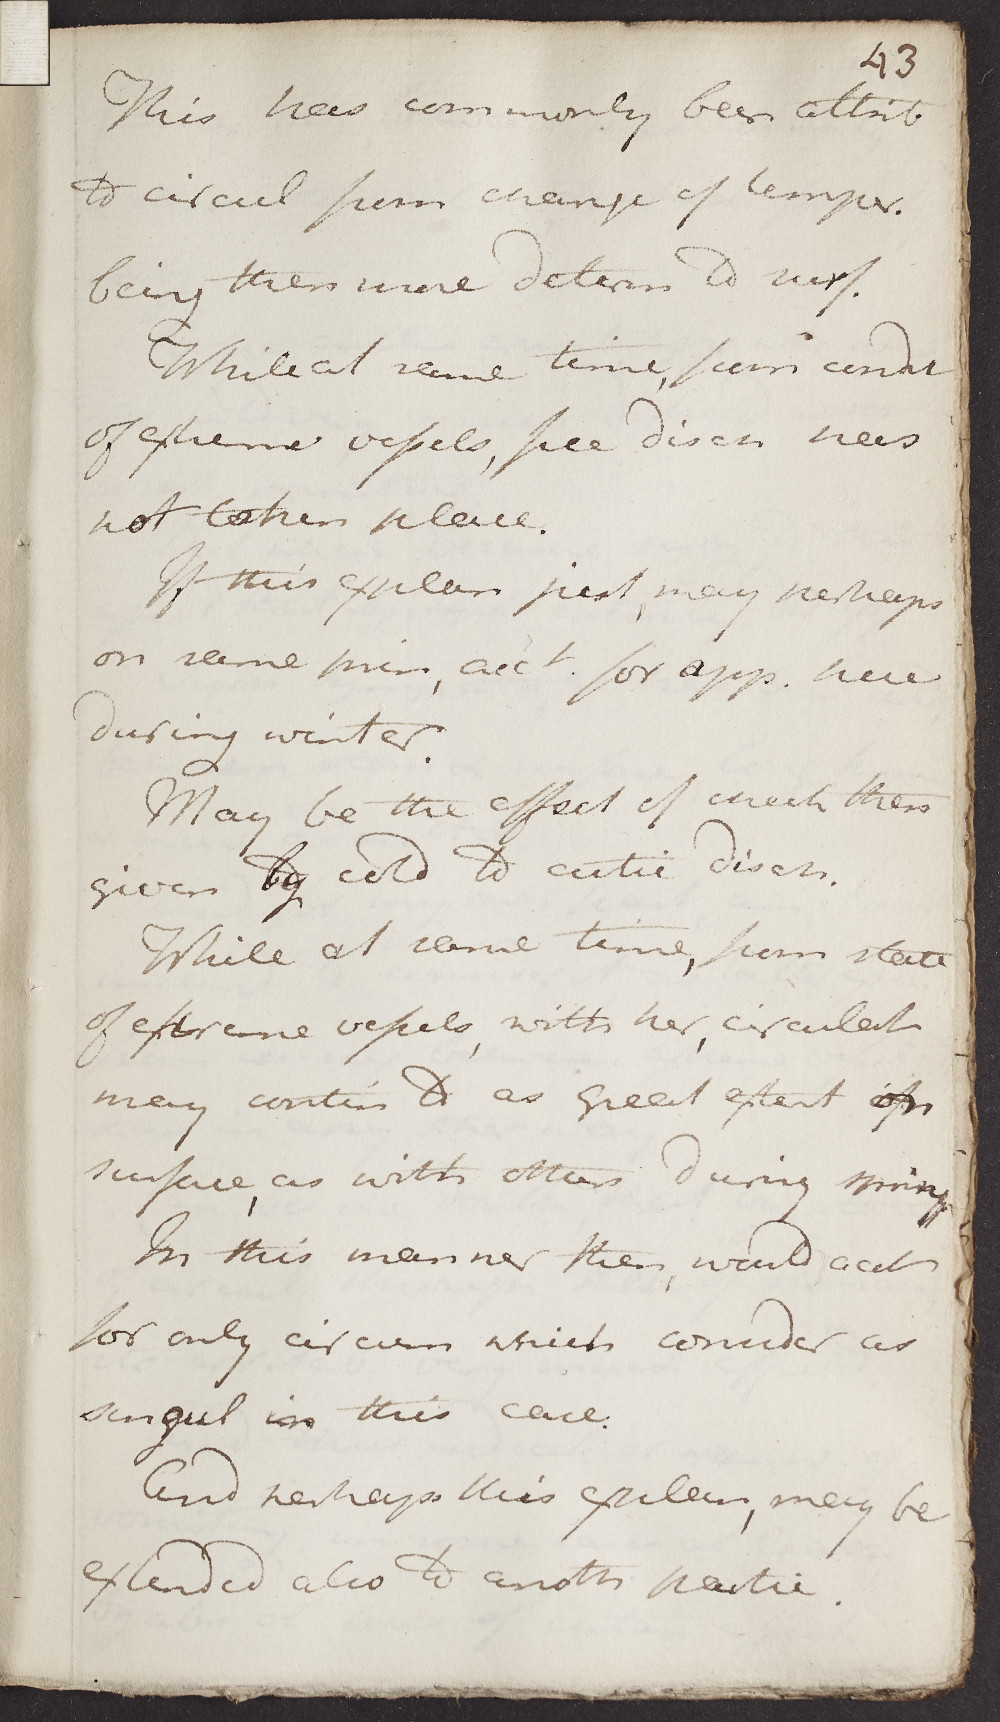 43
This has commonly been attrib
to circul from change of temper.
being then more determ to surf.
While at same time, from condit
of extreme vessels, free disch has
not taken place.
If this explan just, may perhaps
on same prin, acct. for app. here
during winter.
May be the effect of check then
given by cold to cutic disch.
While at same time, from state
of extreme vessels, with her, circulat
may contin to as great extent on
surface, as with others during spring.
In this manner then, would acct
for only circum which consider as
singul in this case.
And perhaps this explan, may be
extended also to anoth partic.